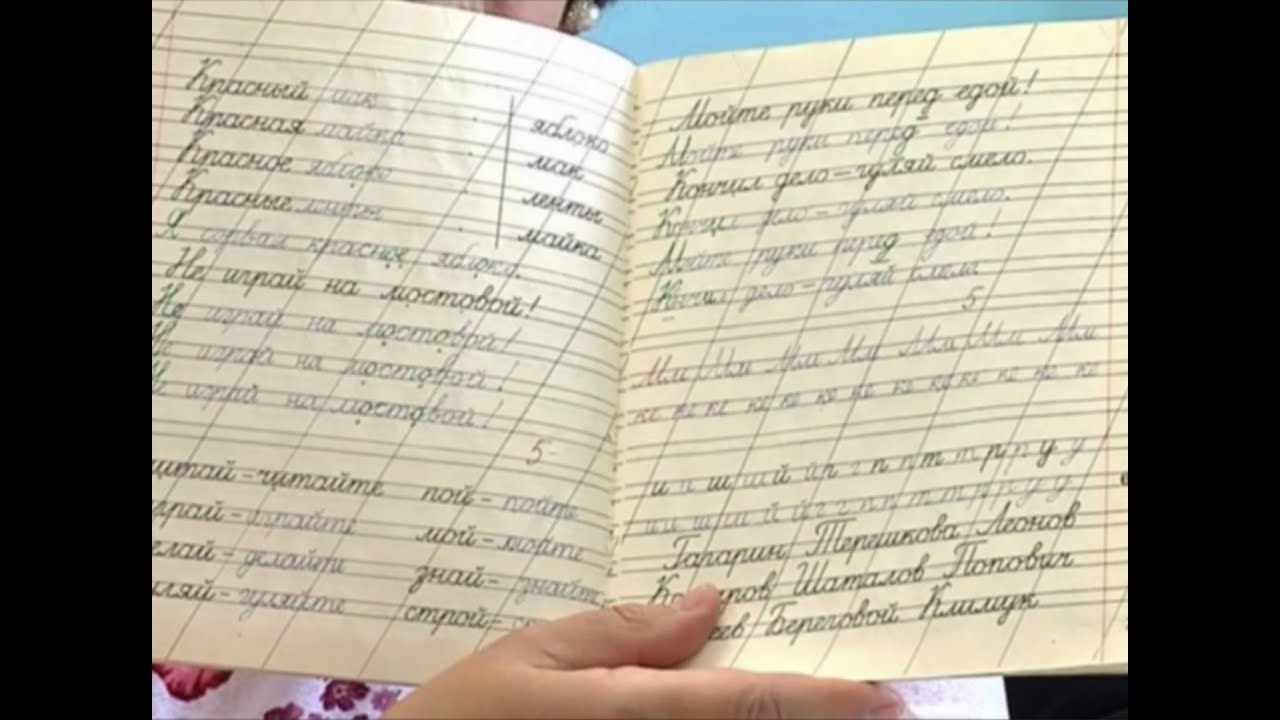 Красный мак
Красная майка
Красное яблоко
Красные ленты
яблоко
мак
ленты
майка
Я сорвал красное яблоко.
Не играй на мостовой!
Не играй на мостовой!
Не играй на мостовой!
Не играй на мостовой!
5
читай-читайте пой-пойте
играй-играйте мой-мойте
делай-делайте знай-знайте
гуляй-гуляйте строй-
Мойте руки перед едой!
Мойте руки перед едой!
Кончил дело-гуляй смело.
Кончил дело-гуляй смело.
Мойте руки перед едой!
Кончил дело-гуляй смело
5
Мм Мм Мм Мм Мм Мм Мм
ке ке ке ке ке ке ке ке ке ке ке ке
и и ш ш й й г г п п т т р р у у
и и ш ш й й г г п п т т р р у у
Гагарин Терешкова Леонов
Шаталов Попович
Береговой Климук